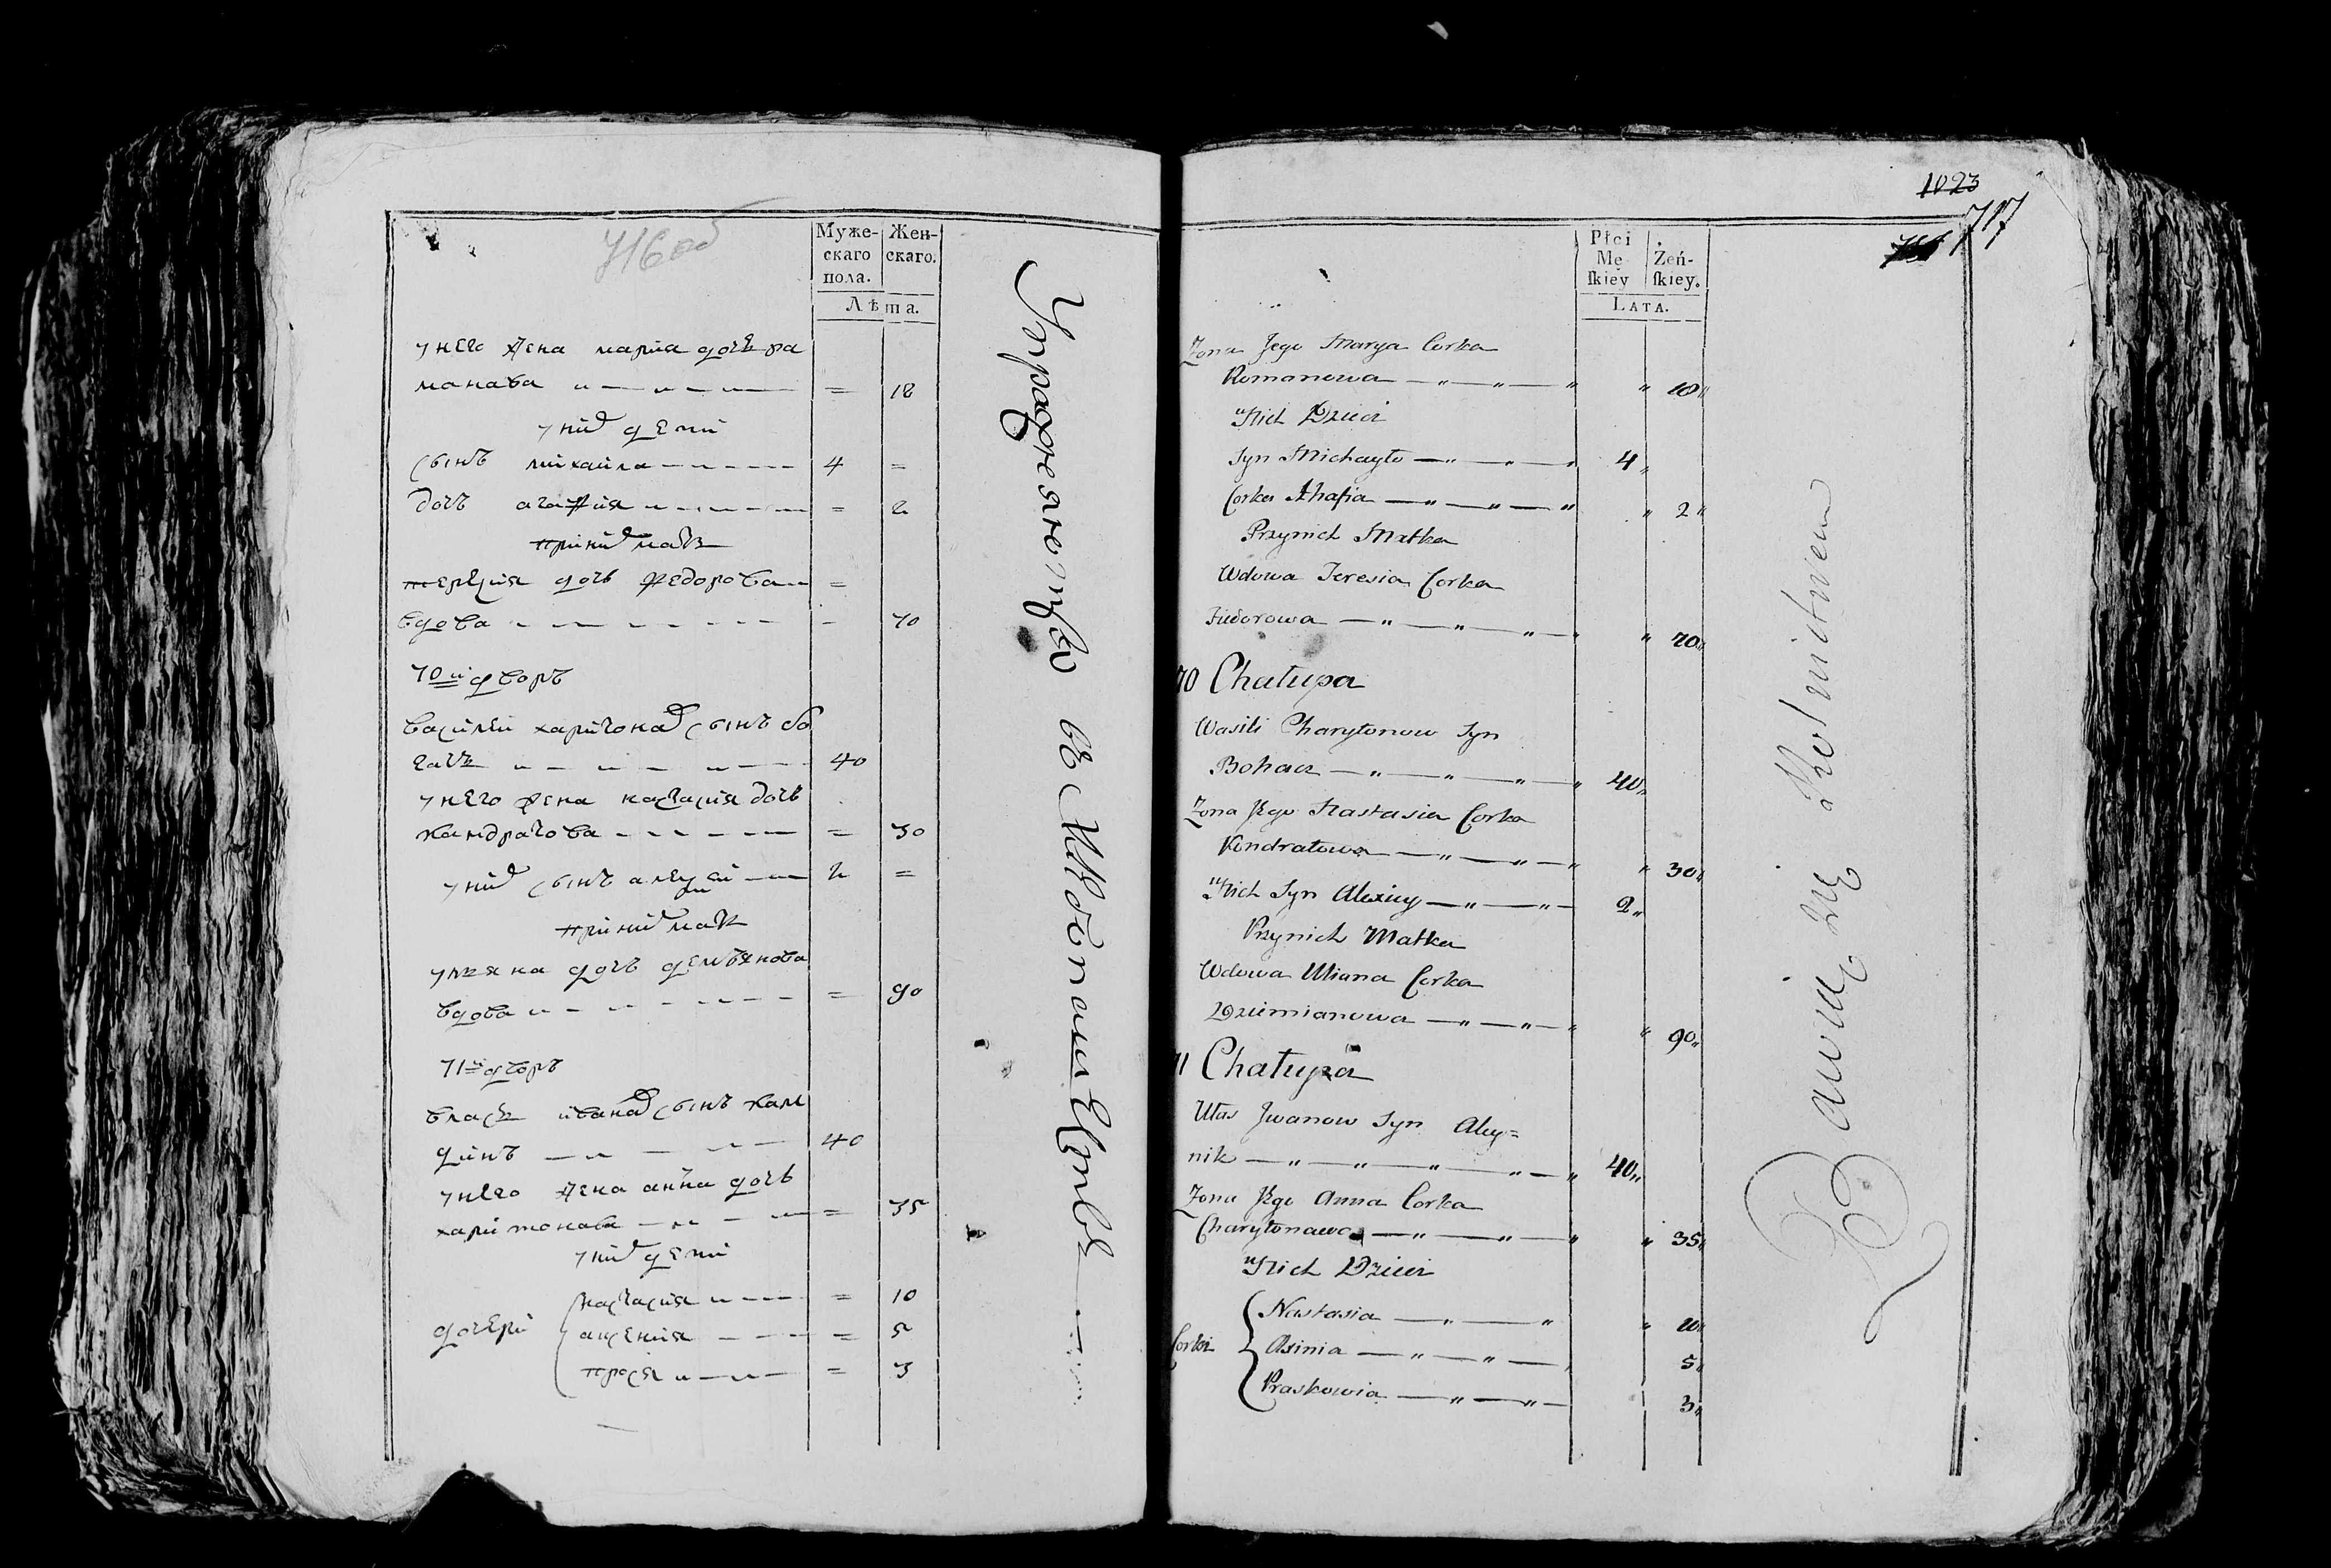 716 об
Муже-
скаго
пола.
Жен-
скаго.
Лѣта.
у него жена мария дочь ра
манова 18
у них дети
сынъ михаила 4
дочъ агафия 2
при них мать
терезия дочь федорова
вдова 70
70й дворъ
василей харитонав сынъ бо
гачь 40
у него жена настасия дочь
кандратова 30
у них сынъ алексей 2
при них мать
ульяна дочъ демьянова
вдова 90
71й дворъ
власъ иванав сынъ
40
у него жена анна дочь
харитонава 35
у них дети
дочери
настасия 10
аксения 5
прося 3
Упражняютца въ хлебопашестве
1023
717
Płci
Mę
ſkiey
Żeń-
ſkiey.
LATA.
Żona Jego Marya Corka
Romanowa " 18 "
u Nich Dzieci
Syn Michayło 4 "
Corka Ahafia " 2 "
Przynich Matka
Wdowa Teresia Corka
Fiedorowa " 70 "
70 Chałupa
Wasili Charytonow Syn
Bohacz 40 "
Żona Jego Nastasia Corka
Kondratowa " 30 "
u Nich Syn Alexiey 2 "
Przynich Matka
Wdowa Uliana Corka
Dziemianowa " 90 "
71 Chałupa
Ułas Jwanow Syn Aley=
nik 40 "
Żona Jego Anna Corka
Charytonawa " 35 "
u Nich Dzieci
Corki
Nastasia " 10 "
Axinia 5 "
Praskowia 3 "
Bawią się Rolnictwem